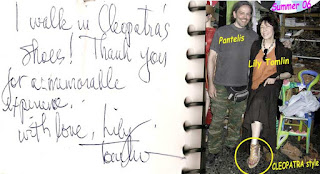 I walk in Cleopatra's
Shoes! Thank you
for a memorable
experience.
with love, Lily
Tomlin
Summer 06
Pantelis
Lily Tomlin
CLEOPATRA style